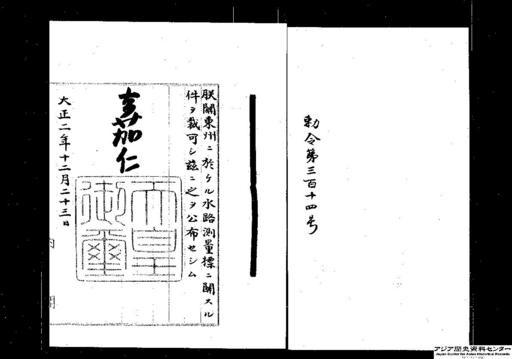 勅令第三百十四号
朕関東州ニ於ケル水路測量標ニ関スル
件ヲ裁可シ茲ニ之ヲ公布セシム
嘉仁
天皇御璽
大正二年十二月二十三日
内閣
アジア歴史資料センター
Japan Center for Asian Historical Records